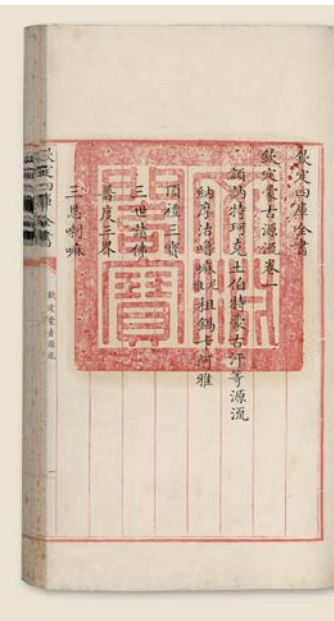 欽定四庫全書
欽定蒙古源流卷一
額訥特珂克土伯特蒙古汗等源流
納摩沽嚕嘛 祖錫 阿雅
頂禮三寶
三世諸佛
普度三界
三恩喇嘛
欽定四庫全書
欽定蒙古源流
一